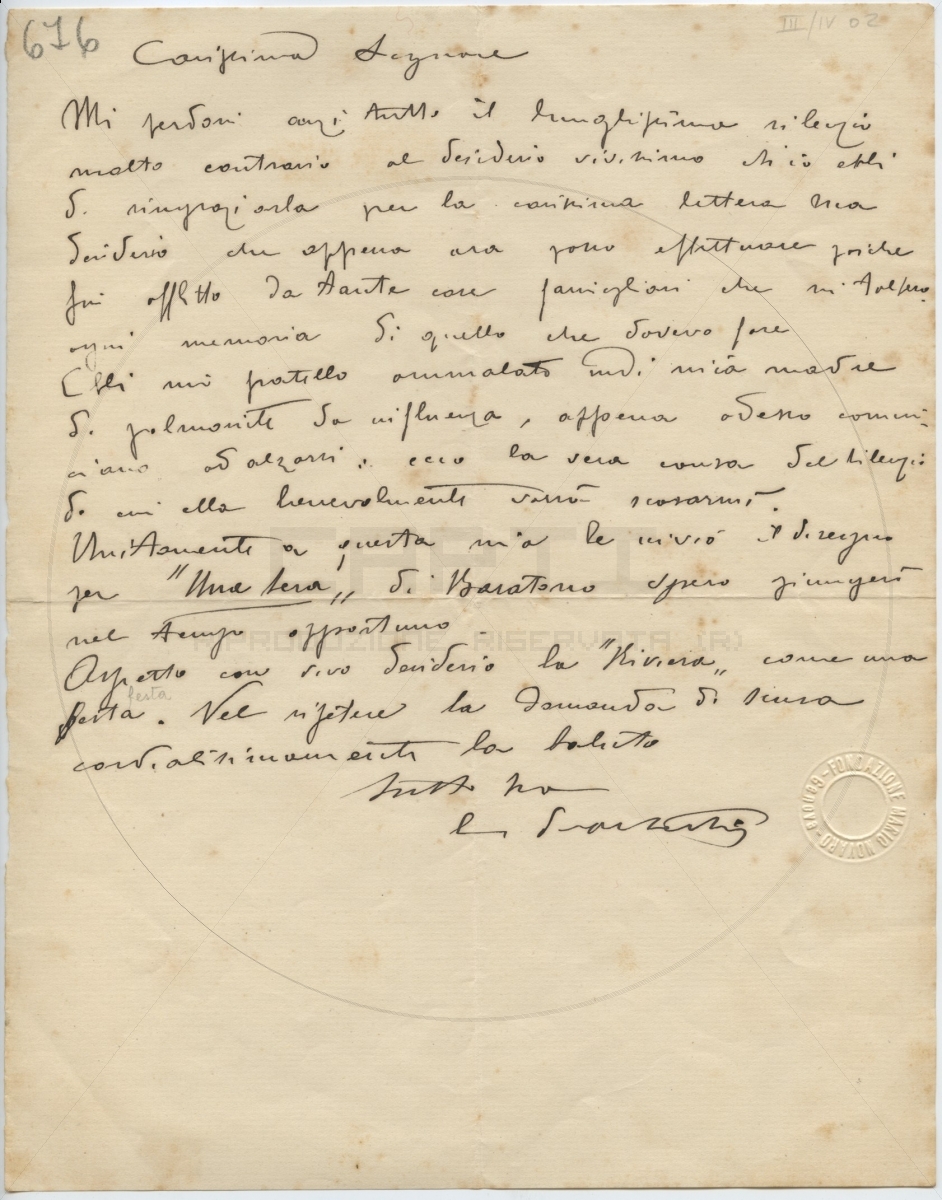 676
III/IV 02
Carissimo Signore
Mi perdoni anzi tutto il lunghissimo silenzio
molto contrario al desiderio vivissimo ch'io ebbi
di ringraziarla per la carissima lettera sua
desiderio che appena ora posso effettuare poiché
fui afflitto da tante cose famigliari che mi tolsero
ogni memoria di quello che dovevo fare
Ebbi mio fratello ammalato indi mia madre
di polmonite da influenza, appena adesso comin-
ciano ad alzarsi, ecco la vera causa del silenzio
di cui ella benevolmente vorrà scusarmi.
Unitamente a questa mia le invio il disegno
per "Una sera„ di Baratono spero giungerà
nel tempo opportuno.
Aspetto con vivo desiderio la "Riviera„ come una
festa
festa. Nel ripetere la domanda di scusa
cordialissimamente la saluto
tutto suo
RIPRODUZIONE RISERVATA (R)
FONDAZIONE MARIO NOVARO